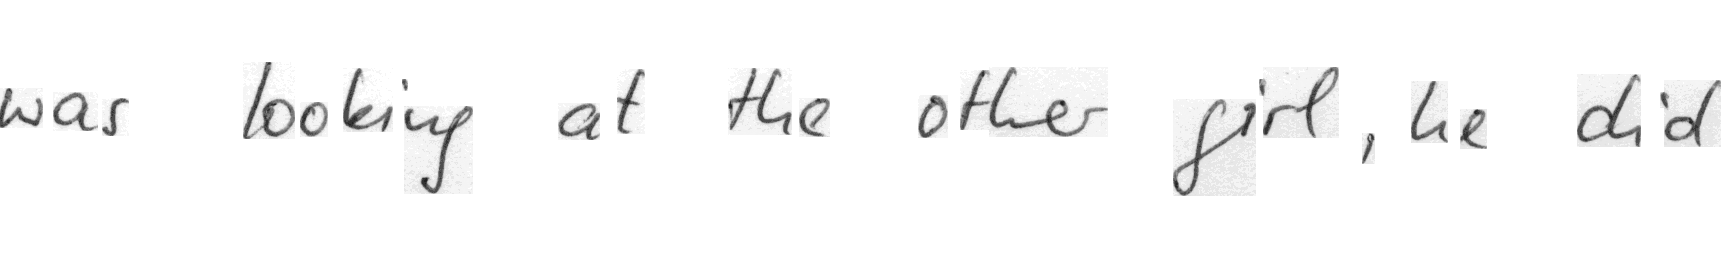 was looking at the other girl, he did